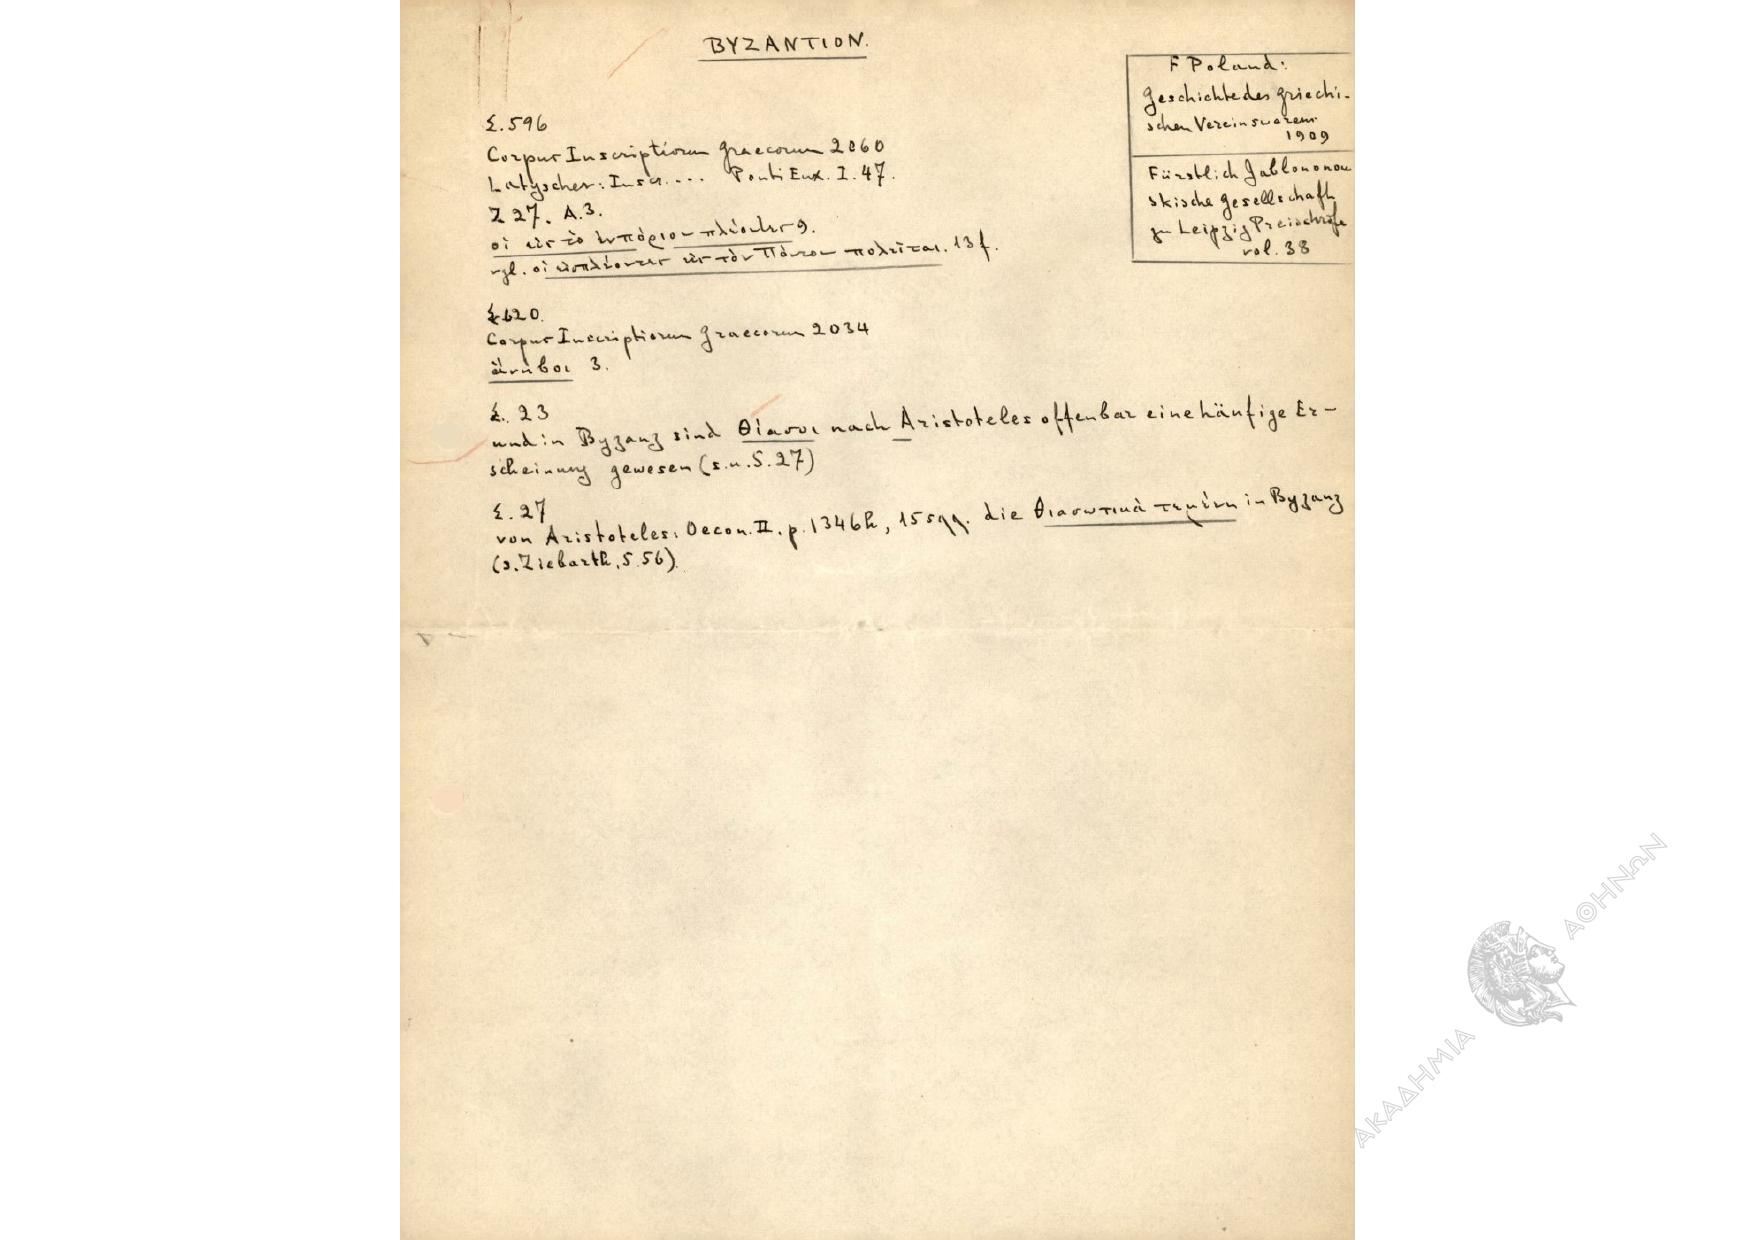 BYZANTION.
F Poland:
Geschichte des Griechi-
schen Vereinswesens
1909
Fürstlich Jablonowskische Gesellschaft
zu Leipzig Preisschrift
vol. 38
Σ. 596
Corpus Inscriptiorum Graecorum 2060
Latyschev: Inscr.... Ponti Eux. I. 47.
Z 27. A.3.
οἱ εἰς τὸ ἐνπόριον πλέοντες 9.
vgl. οἱ εἰσπλέοντες εἰς τὸν Πόντον πολεῖται. 13 f.
Σ 620.
Corpus Inscriptiorum Graecorum 2034
ἄνηβοι 3.
Σ. 23
und in Byzanz sind θίασοι nach Aristoteles offenbar eine häufige Er-
scheinung gewesen (s.u. S. 27)
Σ. 27
von Aristoteles: Oecon. II. p. 1346b, 15 sqq. die θιασωτικὰ τεμένη in Byzanz
(s. Ziebarth, S. 56).
ΑΚΑΔΗΜΙΑ ΑΘΗΝΩΝ